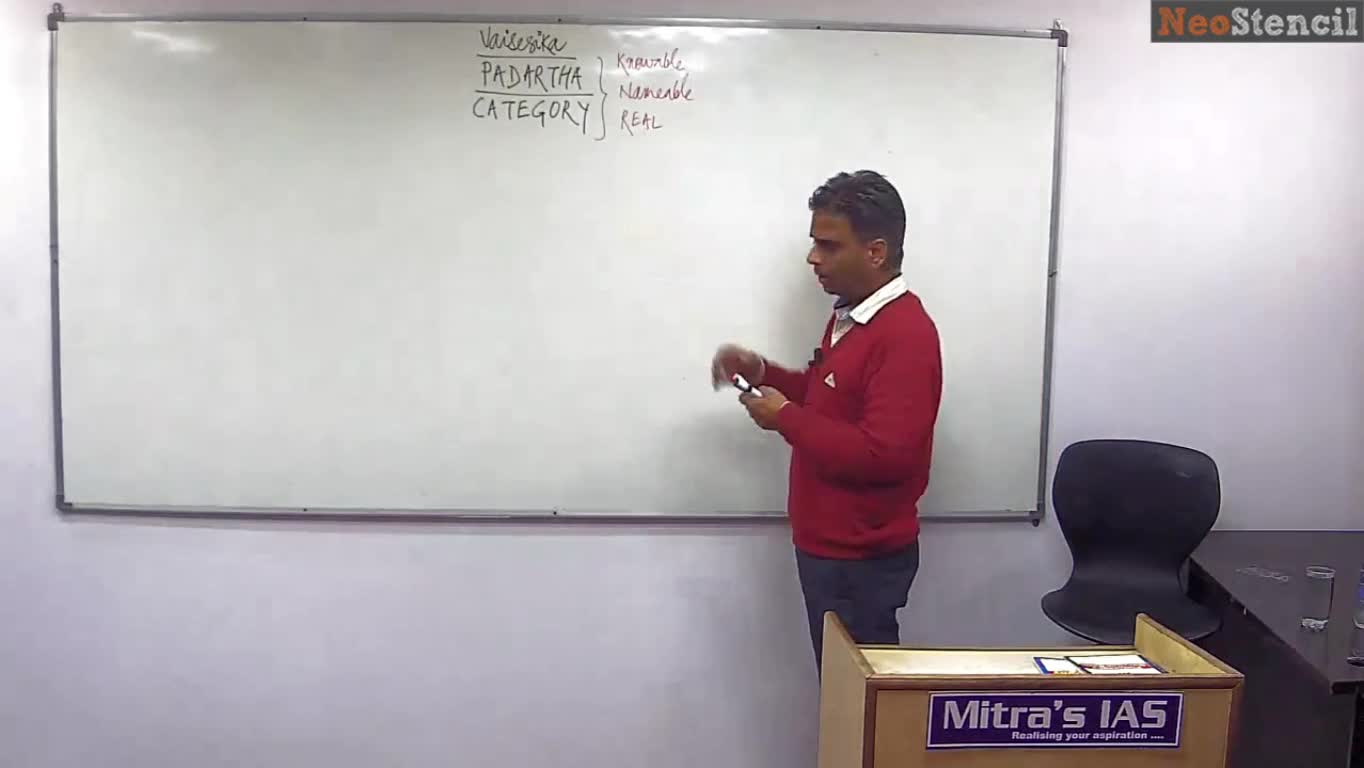 NeoStencil
Vaisesika
PADARTHA
CATEGORY
Knowable
Nameable
REAL
Mitra's IAS
Realising your aspiration ....